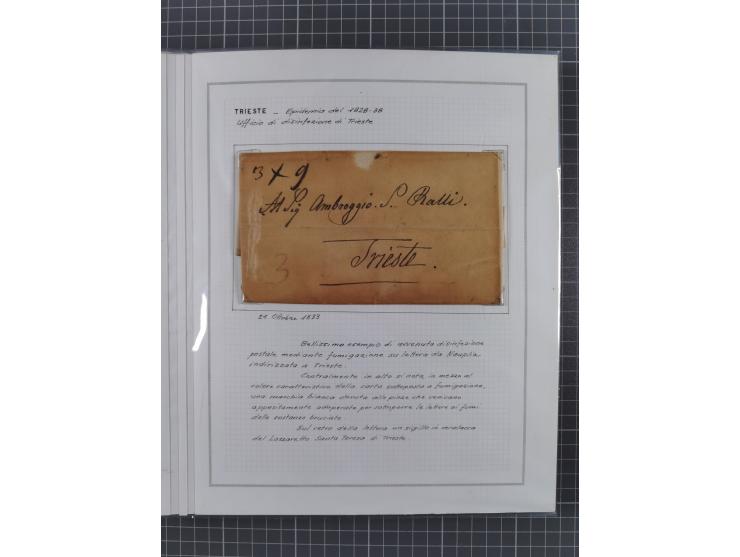 TRIESTE - Epidemia del 1828-38
Ufficio di disinfezione di Trieste
3 x 9
Al Sig Ambroggio. S. Ralli.
Trieste.
3
21 Ottobre 1833
Bellissimo esempio di avvenuta disinfezione
postale mediante fumigazione su lettera da Nauplia,
indirizzata a Trieste.
Centralmente in alto si nota, in mezzo al
colore caratteristico della carta sottoposta a fumigazione,
una macchia bianca dovuta alle pinze che venivano
appositamente adoperate per sottoporre le lettere ai fumi
delle sostanze bruciate.
Sul retro della lettera un sigillo in ceralacca
del Lazzaretto Santa Teresa di Trieste.